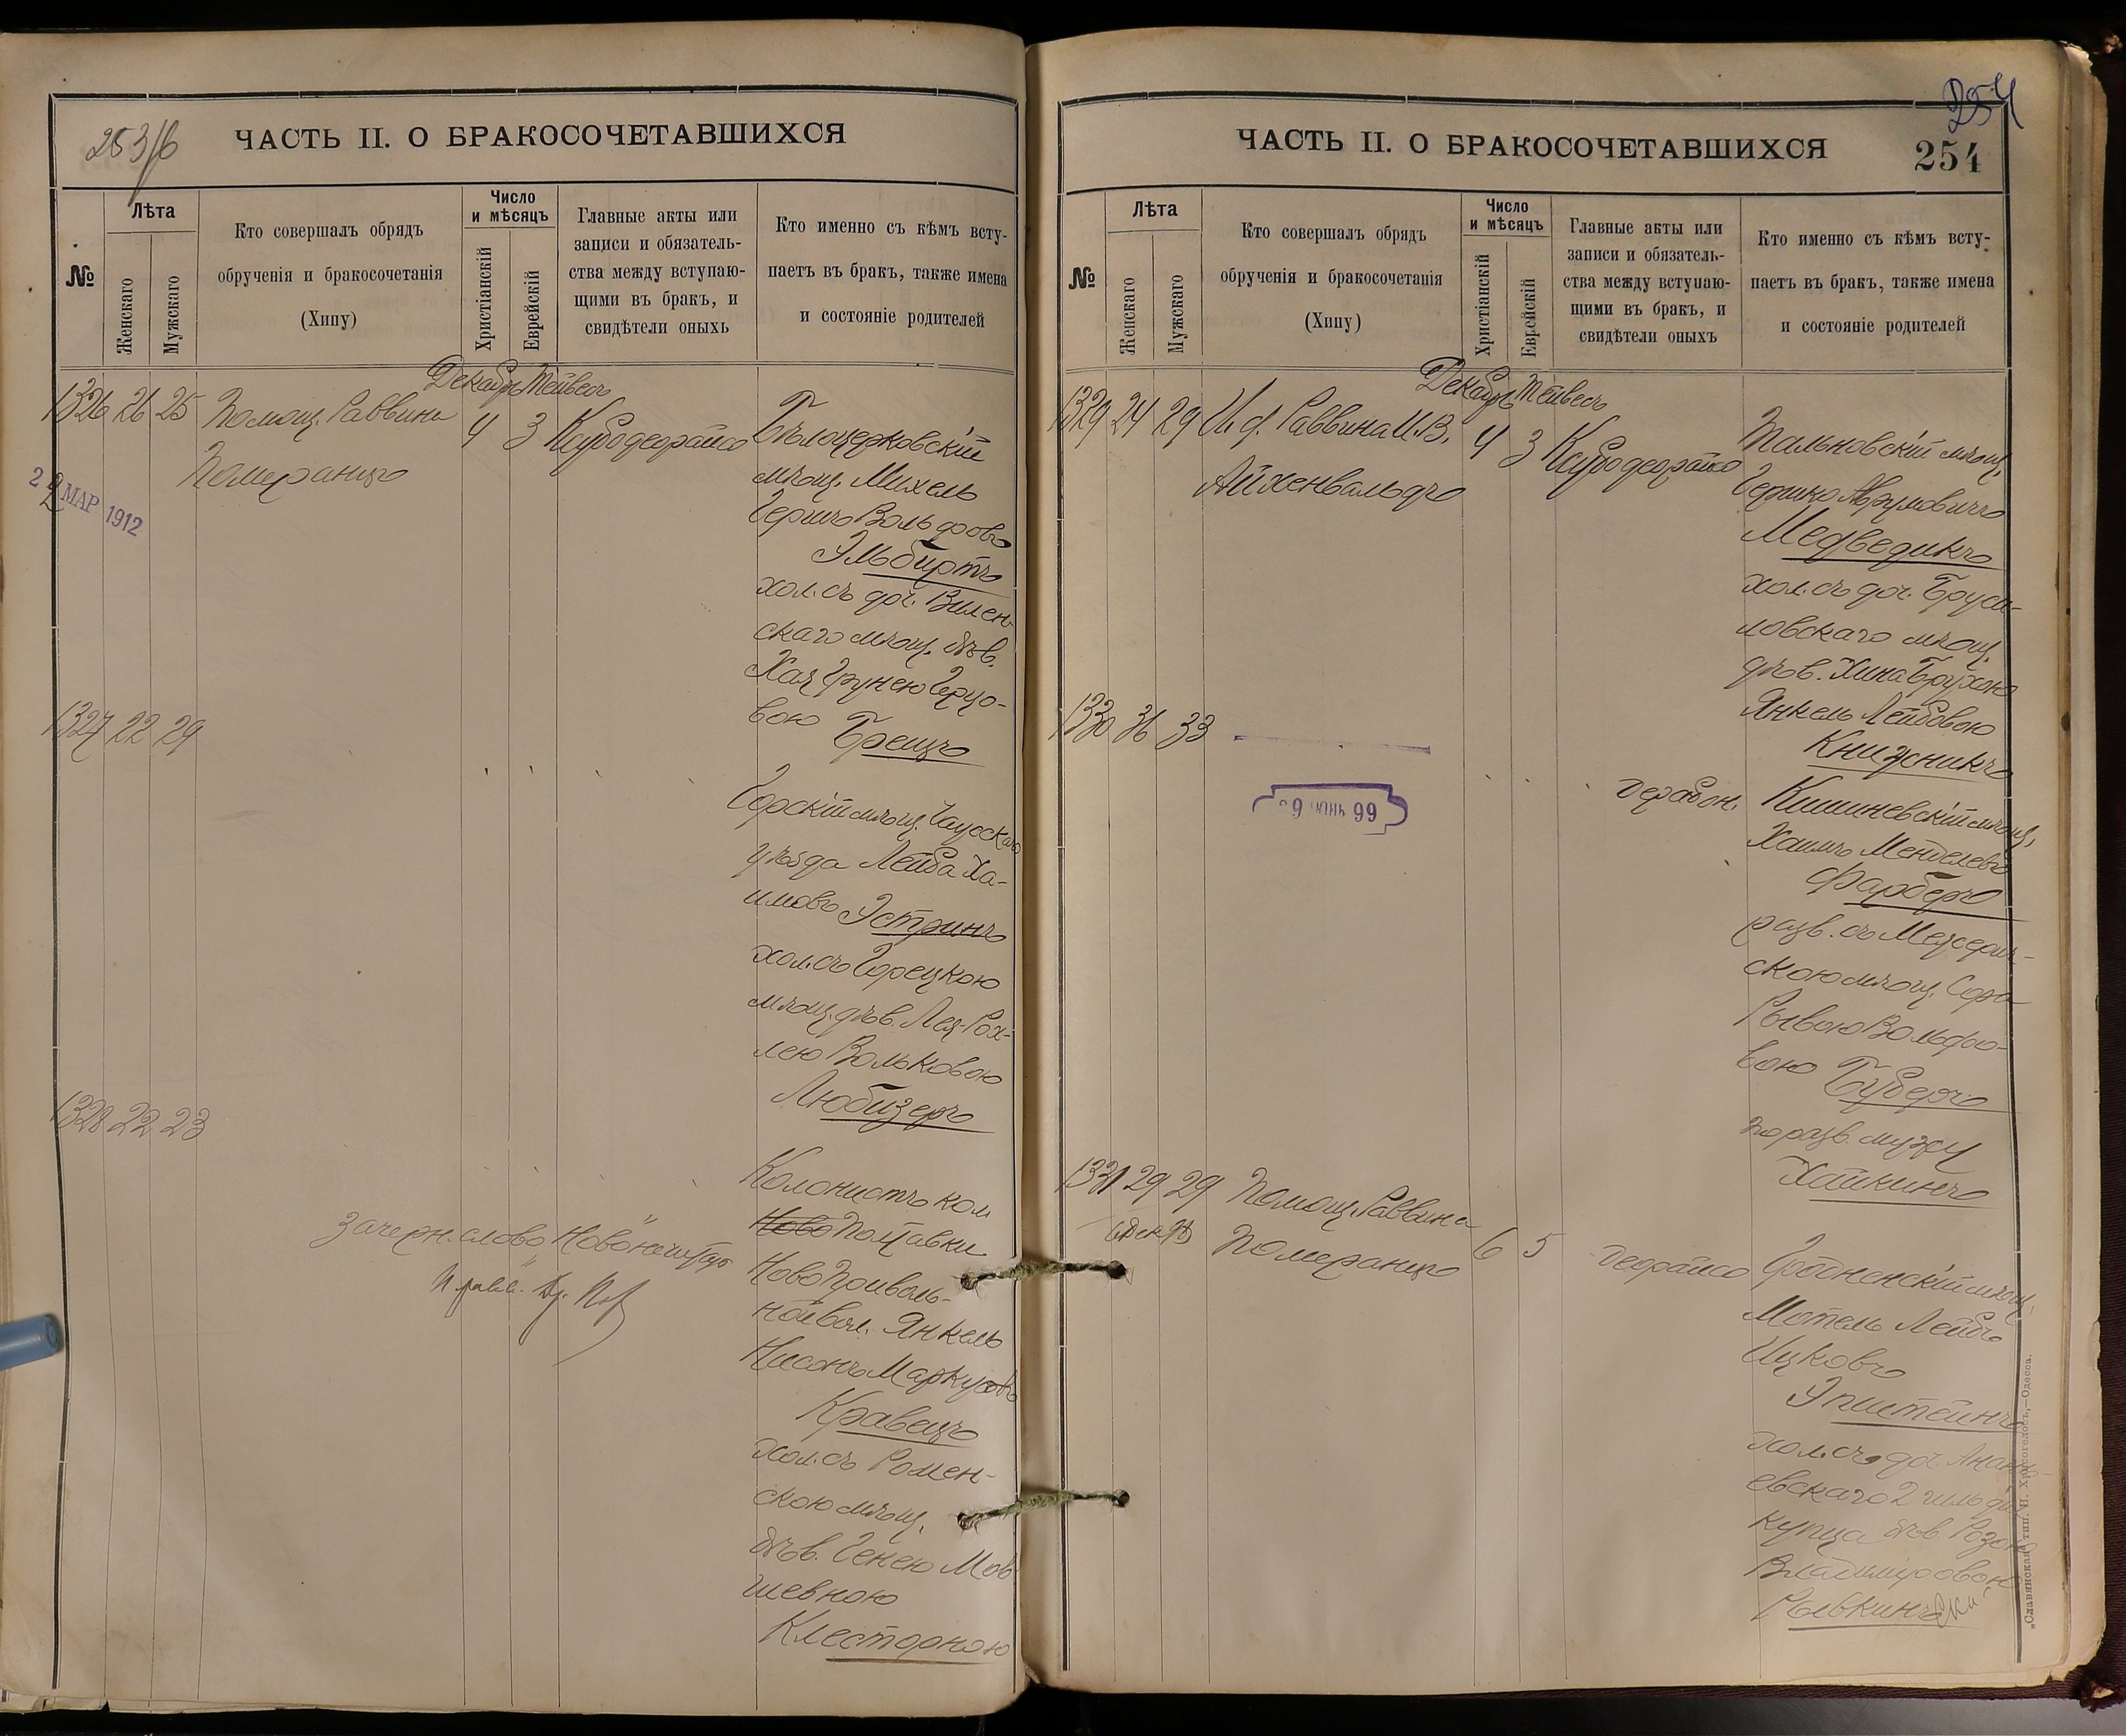 253/б
ЧАСТЬ II. О БРАКОСОЧЕТАВШИХСЯ
№
Лѣта
Женскаго
Мужскаго
Кто совершалъ обрядъ
обрученія и бракосочетанія
(Хипу)
Число
и мѣсяцъ
Христіанскій
Еврейскій
Главные акты или
записи и обязатель-
ства между вступаю-
щими въ бракъ, и
свидѣтели оныхъ
Кто именно съ кѣмъ всту-
паетъ въ бракъ, также имена
и состояніе родителей
Декабрь Тейвесъ
1326 26 25 Помощ. Раввина
Померанцъ
4 3
22 МАР 1912
Бѣлоцерковскій
мѣщ. Михель
Гершъ Вольфовъ
Эльбиртъ
хол. съ доч. Вилен-
скаго мѣщ. дѣв.
Хая Грунею Герцо-
вою
1327 22 29
Горскій мѣщ. Чаусскаго
уѣзда Лейба Ха-
имовъ Эстринъ
хол. съ Горецкою
мѣщ. дѣв. Лея-Рох-
лею Вольковою
Любизеръ
1328 22 23
Колонистъ кол.
Ново Полтавки
Ново Приволь-
ной вол. Янкель
Нисонъ Маркусовъ
Кравецъ
хол. съ Ромен-
скою мѣщ.
дѣв. Генею Мов-
шевною
Клесторною
Зачерк. слово "Ново" не читать
ЧАСТЬ II. О БРАКОСОЧЕТАВШИХСЯ
254
254
№
Лѣта
Женскаго
Мужскаго
Кто совершалъ обрядъ
обрученія и бракосочетанія
(Хипу)
Число
и мѣсяцъ
Христіанскій
Еврейскій
Главные акты или
записи и обязатель-
ства между вступаю-
щими въ бракъ, и
свидѣтели оныхъ
Кто именно съ кѣмъ всту-
паетъ въ бракъ, также имена
и состояніе родителей
Декабрь Тейвесъ
1329 24 29 И. ф. Раввина И. В.
Айхенвальдъ
4 3
Тальновскій мѣщ.
Гершко Абрумовичъ
Медведикъ
хол. съ доч. Бруси-
ловскаго мѣщ.
дѣв. Хина Брухою
Янкель Лейбовою
Книжникъ
1330 36 33
Кишиневскій мѣщ.
Хаимъ Менделевъ
Фарберъ
разв. съ Межерич-
скою мѣщ. Сура
Рывою Вольфо-
вою Губеръ
по разв. мужу
Хайкинъ
1331 29 29 Помощ. Раввина
Померанцъ
6 5
Гродненскій мѣщ.
Мотель Лейбъ
Ицковъ
Эпштейнъ
хол. съ доч. Анань-
евскаго 2 гильдіи
купца дѣв. Розою
Владиміровою
Рывкинъ
„Славянская" тип. Н. Хрисогелосъ,—Одесса.